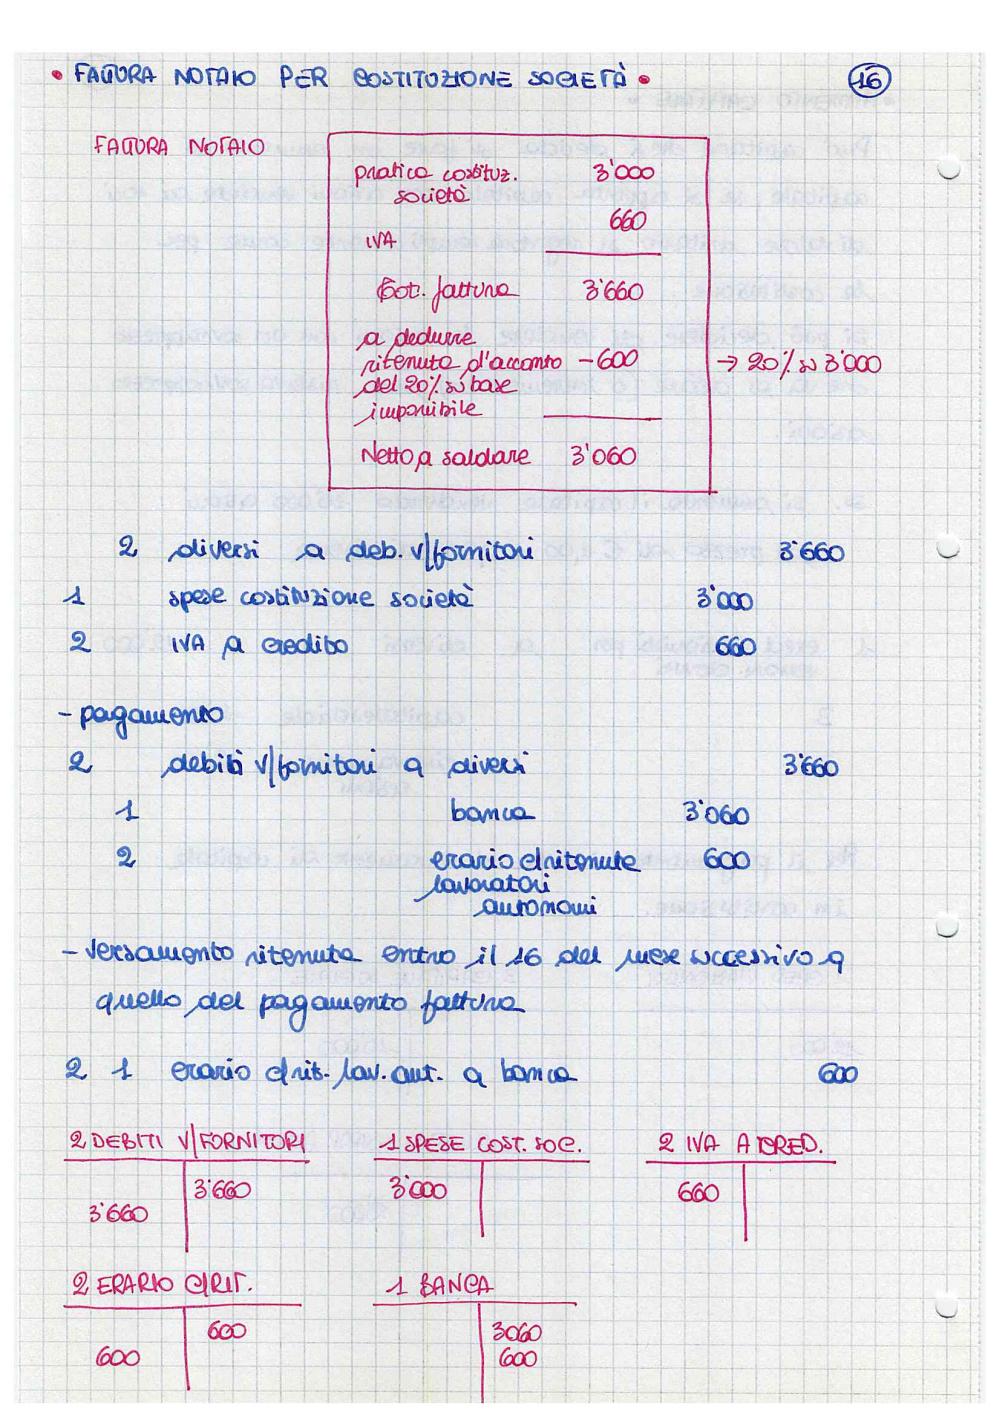 • FATTURA NOTAIO PER COSTITUZIONE SOCIETÀ •
16
FATTURA NOTAIO
pratica costituz. 3'000
società
660
IVA
tot. fattura 3'660
a dedurre
ritenuta d'acconto -600 → 20% su 3'000
del 20% su base
imponibile
Netto a saldare 3'060
2 diversi a deb. v/fornitori 3'660
1 spese costituzione società 3'000
2 IVA a credito 660
- pagamento
2 debiti v/fornitori a diversi 3'660
1 banca 3'060
2 erario c/ritenute 600
lavoratori
autonomi
- versamento ritenuta entro il 16 del mese successivo a
quello del pagamento fattura
2 1 erario c/rit. lav. aut. a banca 600
2 DEBITI V/FORNITORI 1 SPESE COST. SOC. 2 IVA A CRED.
3'660 3'000 660
3'660
2 ERARIO C/RIT. 1 BANCA
600 3060
600 600